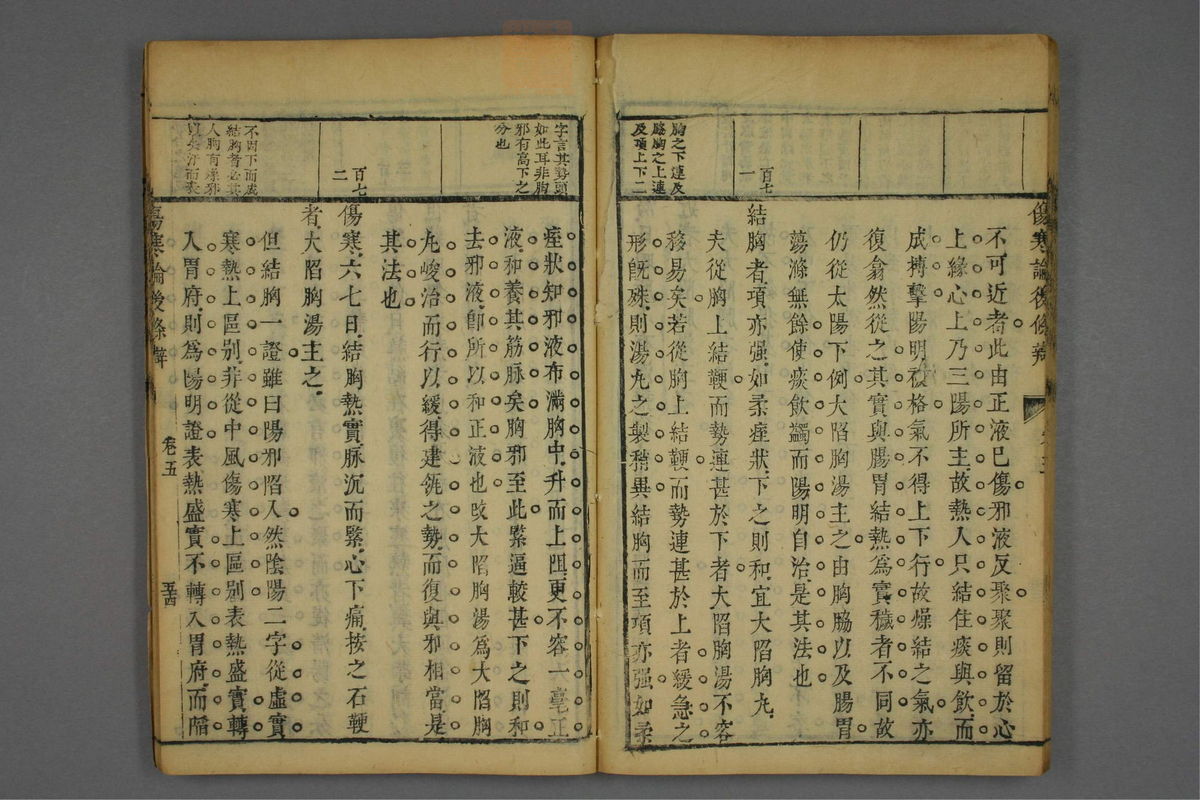 傷寒論後條辨
不可近者此由正液已傷邪液反聚聚則留於心
上緣心上乃三陽所主故熱入只結住痰與飲而
成搏擊陽明格氣不得上下行故燥結之氣亦
復翕然從之其實與腸胃結熱爲實穢者不同故
仍從太陽下例大陷胸湯主之由胸脇以及腸胃
蕩滌無餘使痰飲蠲而陽明自治是其法也
百七一
結胸者項亦强如柔痓狀下之則和宜大陷胸丸
夫從胸上結鞕而勢連甚於下者大陷胸湯不容
移易矣若從胸上結鞕而勢連甚於上者緩急之
形旣殊則湯丸之製稍異結胸而至項亦强如柔
胸之下連及
脇胸之上連
及項上下二
字言其勢頭
如此耳非胸
邪有高下之
分也
痓狀知邪液布滿胸中升而上阻更不容一毫正
液和養其筋脉矣胸邪至此緊逼較甚下之則和
去邪液卽所以和正液也改大陷胸湯爲大陷胸
丸峻治而行以緩得建瓴之勢而復與邪相當是
其法也
百七二
傷寒六七日結胸熱實脉沉而緊心下痛按之石鞕
者大陷胸湯主之
但結胸一證雖曰陽邪陷入然陰陽二字從虛實
寒熱上區別非從中風傷寒上區别表熱盛實轉
入胃府則爲陽明證表熱盛實不轉入胃府而陷
不因下而成
結胸者必其
人胸有燥邪
以失汗而表
傷寒論後條辨
卷五
五十四